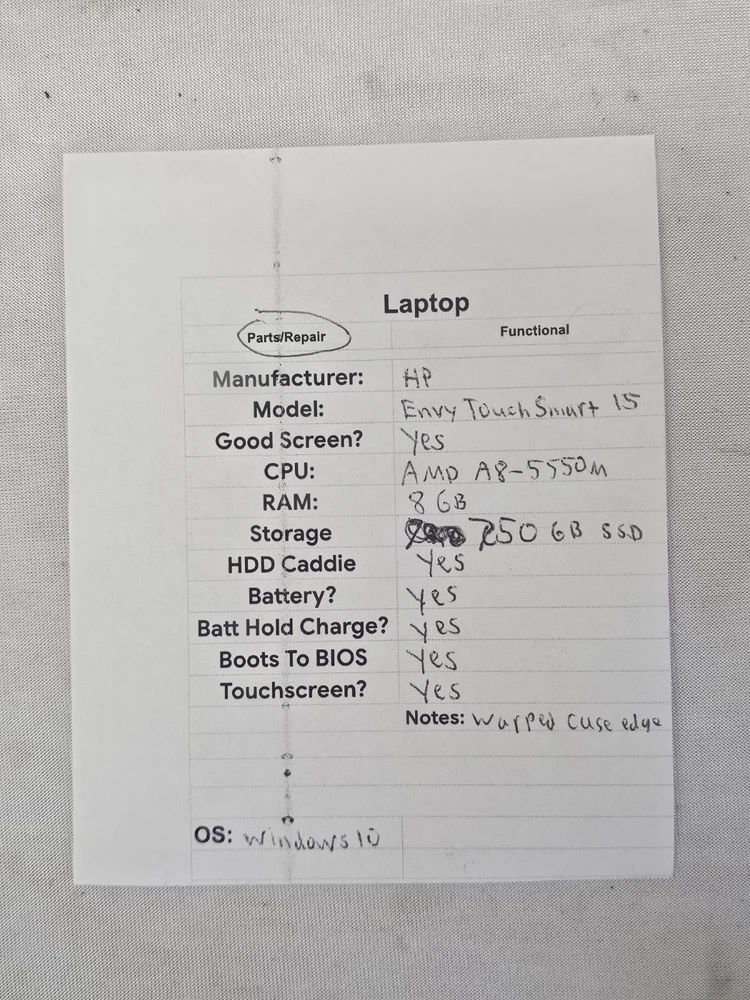 Laptop
Parts/Repair Functional
Manufacturer: HP
Model: Envy TouchSmart 15
Good Screen? Yes
CPU: AMD A8-5550M
RAM: 8 GB
Storage GB SSD
HDD Caddie Yes
Battery? Yes
Batt Hold Charge? Yes
Boots To BIOS Yes
Touchscreen? Yes
Notes: Warped Case edge
OS: Windows 10